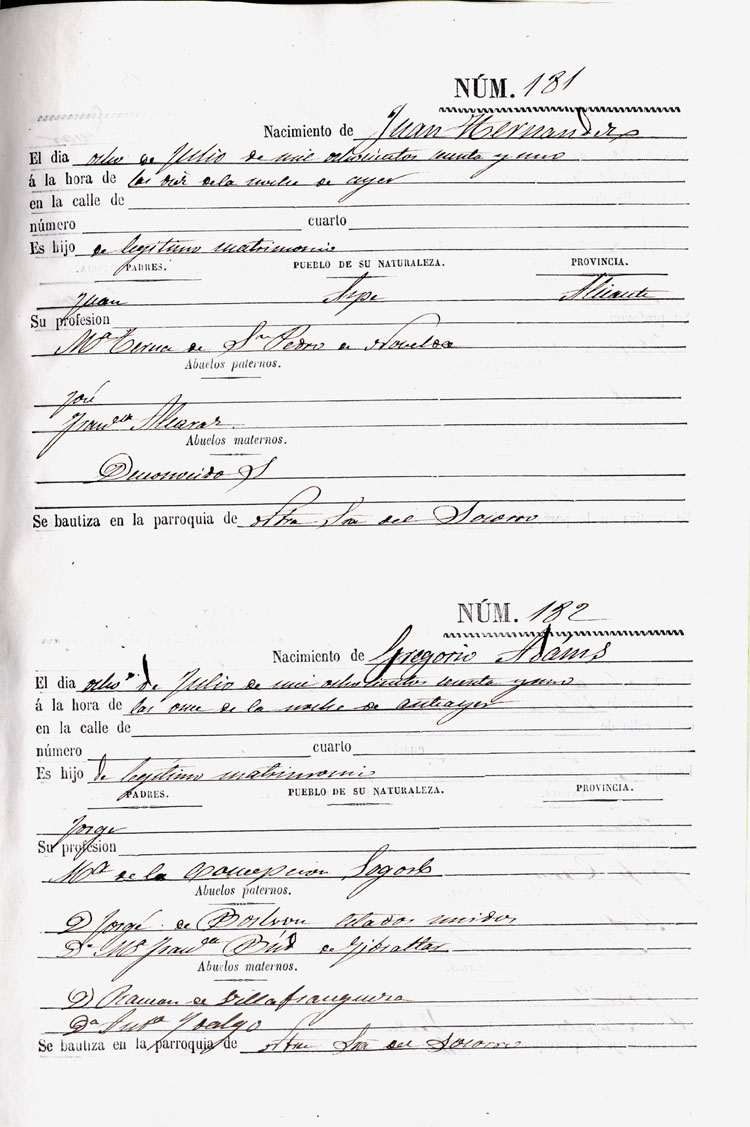 NÚM. 181
Nacimiento de Juan Hernandez
El dia ocho de Julio de mil ochocientos y uno
á la hora de las diez de la noche de ayer
en la calle de
número cuarto
Es hijo de legitimo matrimonio
PADRES. PUEBLO DE SU NATURALEZA. PROVINCIA.
Juan Aspe Alicante
Su profesion
Mª de Sn Pedro de Novelda
Abuelos paternos.
José
Franca Alcaraz
Abuelos maternos.
Se bautiza en la parroquia de Ntra Sra del Socorro
NÚM. 182
Nacimiento de Gregorio Adams
El dia ocho de Julio de mil ochocientos y uno
á la hora de las once de la noche de anteayer
en la calle de
número cuarto
Es hijo de legitimo matrimonio
PADRES. PUEBLO DE SU NATURALEZA. PROVINCIA.
Jorge
Su profesion
Mª de la Concepcion
Abuelos paternos.
D Jorge de Boston Estados unidos
Dª Mª Franca de Gibraltar
Abuelos maternos.
D Ramon de Villafranqueza
Dª
Se bautiza en la parroquia de Ntra Sra del Socorro